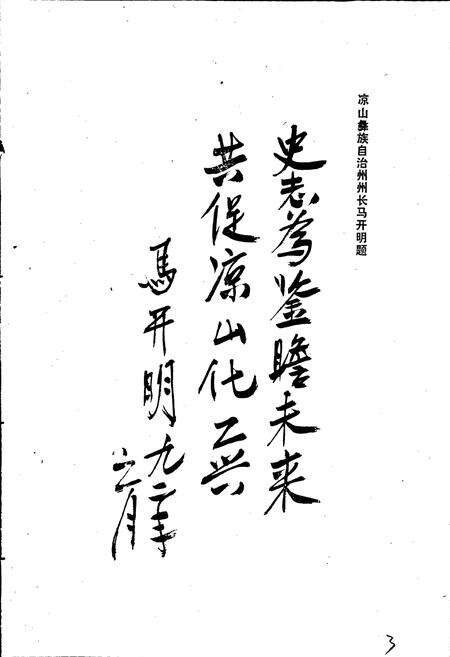 凉山彝族自治州州长马开明题
史志为鉴瞻未来
共促凉山化工兴
馬开明 九二年
六月
3